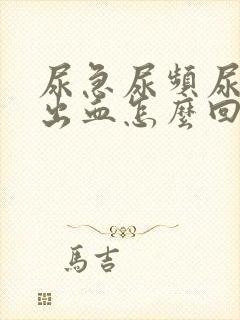 尿急尿頻尿
出血怎麼回
馬吉